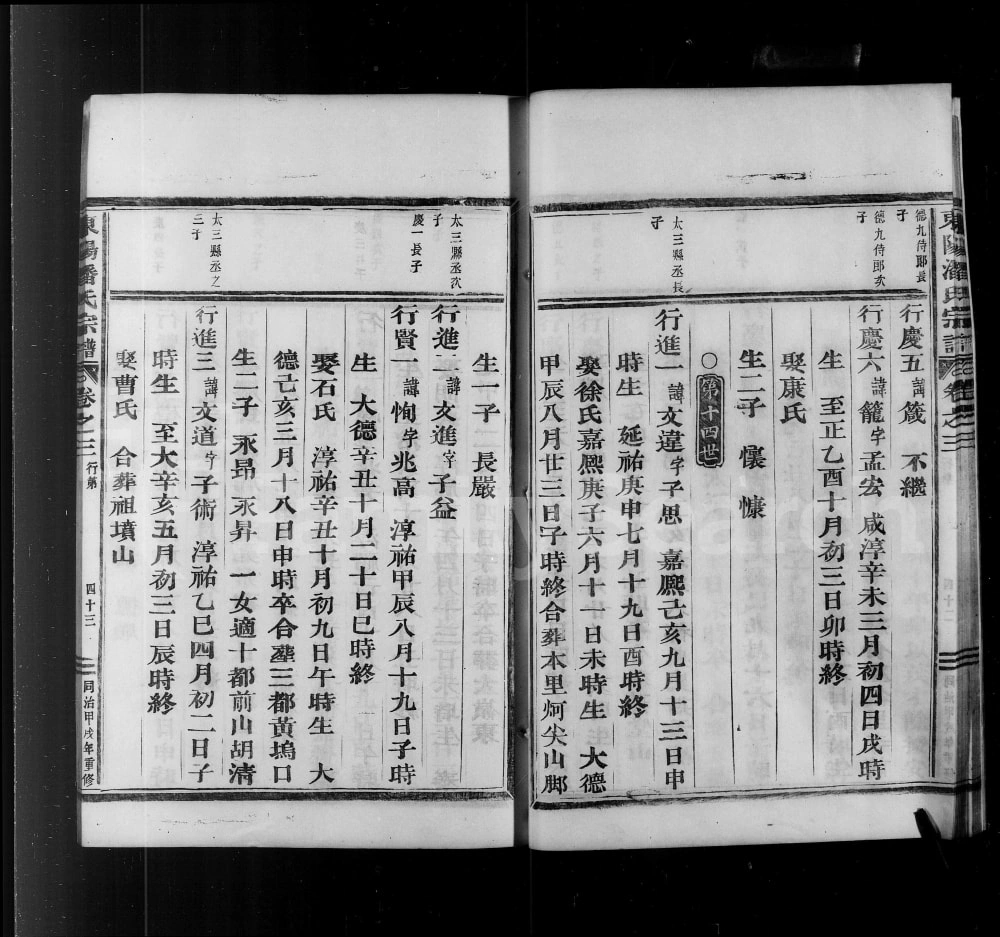 東陽潘氏宗譜 卷之三
德九侍郎長子
行慶五 諱 箴 不繼
德九侍郎次子
行慶六 諱 籠 字 孟宏 咸淳辛未三月初四日戌時
生 至正乙酉十月初三日卯時終
娶康氏
生二子 懷 慷
○第十四世
太三縣丞長子
行進一 諱 文達 字 子思 嘉熙己亥九月十三日申
時生 延祐庚申七月十九日酉時終
娶徐氏嘉熙庚子六月十一日未時生 大德
甲辰八月廿三日子時終合葬本里炣尖山脚
生一子 長嚴
太三縣丞次子
行進二 諱 文進 字 子益
慶一長子
行賢一 諱 恂 字 兆高 淳祐甲辰八月十九日子時
生 大德辛丑十月二十日巳時終
娶石氏 淳祐辛丑十月初九日午時生 大
德己亥三月十八日申時卒合塟三都黃塢口
生二子 永昂 永昇 一女適十都前山胡清
太三縣丞之三子
行進三 諱 文道 字 子術 淳祐乙巳四月初二日子
時生 至大辛亥五月初三日辰時終
娶曹氏 合葬祖墳山
東陽潘氏宗譜 卷之三 行第 四十三 同治甲戌年重修